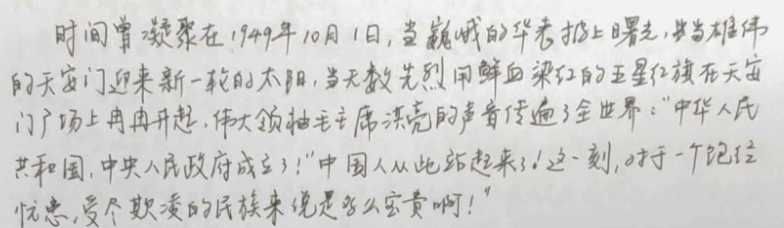 时间曾凝聚在1949年10月1日,当巍峨的华表披上曙光,当雄伟
的天安门迎来新一轮的太阳,当无数先烈用鲜血染红的五星红旗在天安
门广场上冉冉升起,伟大领袖毛主席洪亮的声音传遍了全世界:“中华人民
共和国,中央人民政府成立了!”中国人从此站起来了!这一刻,对于一个饱经
忧患,受尽欺凌的民族来说是多么宝贵啊!”